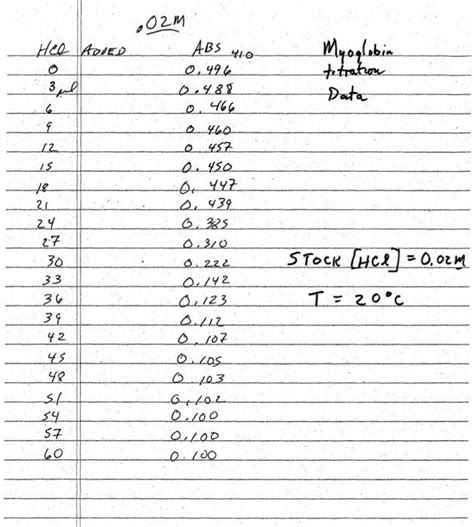 .02M
HCl ADDED ABS 410 Myoglobin
0 0.496 titration
3 μl 0.488 Data
6 0.466
9 0.460
12 0.457
15 0.450
18 0.447
21 0.439
24 0.385
27 0.310
30 0.222 STOCK [HCl] = 0.02M
33 0.142
36 0.123 T = 20°C
39 0.112
42 0.107
45 0.105
48 0.103
51 0.102
54 0.100
57 0.100
60 0.100